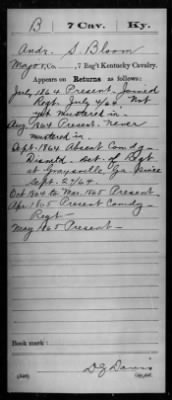 B 7 Cav. Ky.
Andr. S. Bloom
Major, Co. , 7 Reg't Kentucky Cavalry.
Appears on Returns as follows:
July 1864 Present. Joined
Regt. July 4/64. Not
yet mustered in.
Aug 1864 Present. Never
mustered in.
Sept. 1864 Absent Comdg
Dismtd. det. of Regt
at Graysville, Ga. since
Sept. 27/64.
Oct 1864 to Mar. 1865 Present
Apr. 1865 Present Comdg
Regt
May 1865 Present
Book mark:
Copyist.